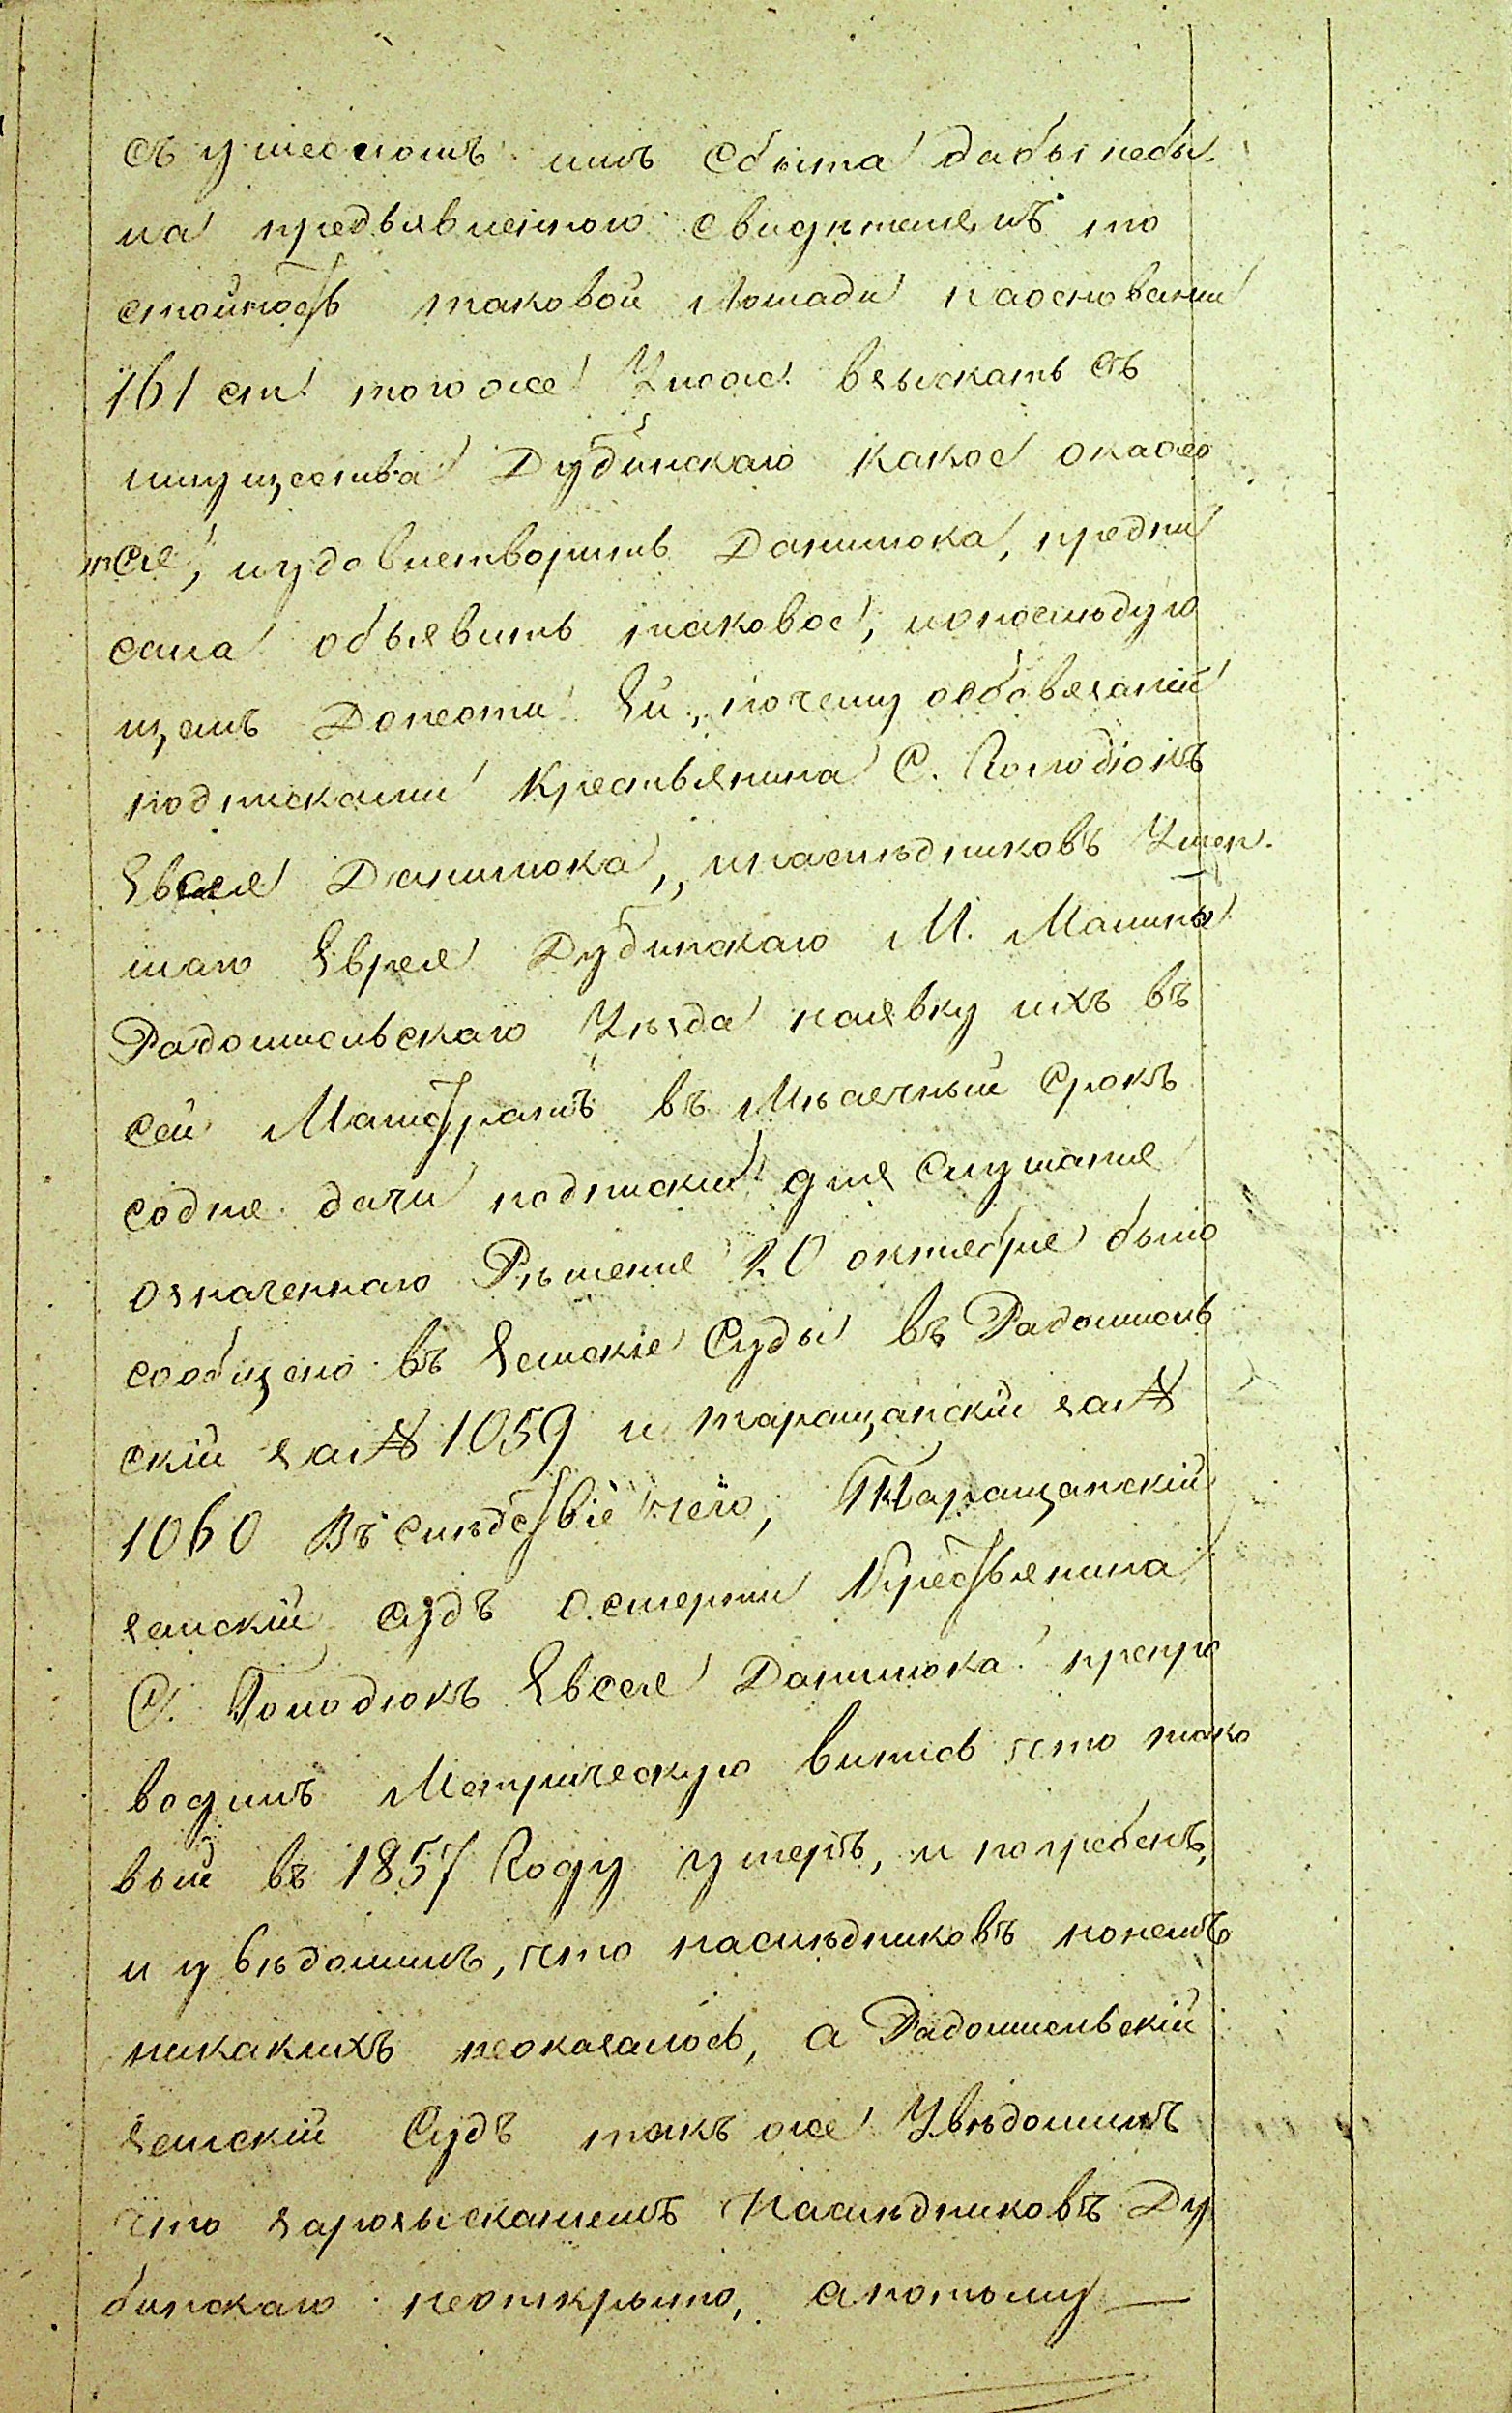 съ умысломъ имъ сбыта дабы небы
ла предъявленною свидѣтелемъ то
стоймость таковой Лошади наосновании
161 ст: того же Улож. взыскать съ
имущества Дубинскаго какое окаже
тся, иудовлетворить Данилюка, предпи
сала объявить таковое, ипослѣдую
щемъ Донести Ей, почему обобязаніи
подписками Крестьянина С. Голодюкъ
Евсея Данилюка, инаслѣдниковъ Умер.
шаго Еврея Дубинскаго М. Малина
Радомысльскаго Уѣзда наявку ихъ въ
сей Магистратъ въ Мѣсечный Срокъ
содня дачи подписки для Слушания
означеннаго Рѣшения 20 октября было
сообщено въ Земские Суды въ Радомысль
скій за № 1059 и таращанскій за №
1060 Въ слѣдствіе чего, Таращанскій
земскій судъ о смерти Крестьянина
С. Голодюкъ Евсея Данилюка препро
водилъ Метрическую выпись что тако
вый въ 1857 Году умеръ, и погребенъ,
и увѣдомилъ, что наслѣдниковъ понемъ
никакихъ неоказалось, а Радомысльскій
земскій Судъ такъ же Увѣдомилъ
что зарозысканиемъ Наслѣдниковъ Ду
бинскаго неоткрыто, апотому —